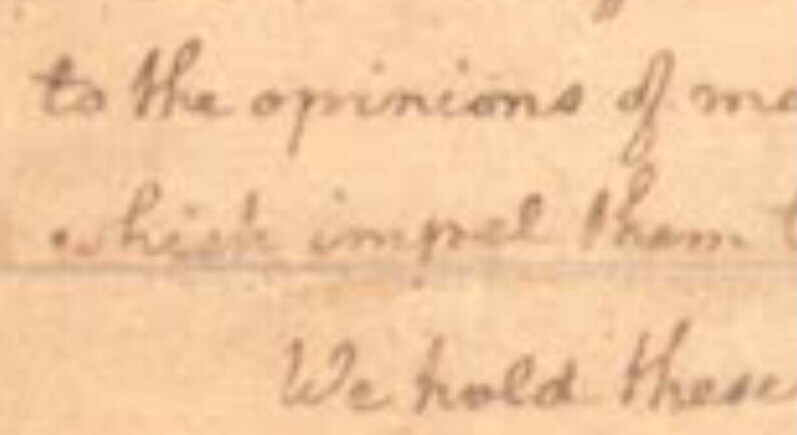 to the opinions of ma
which impel them t
We hold these